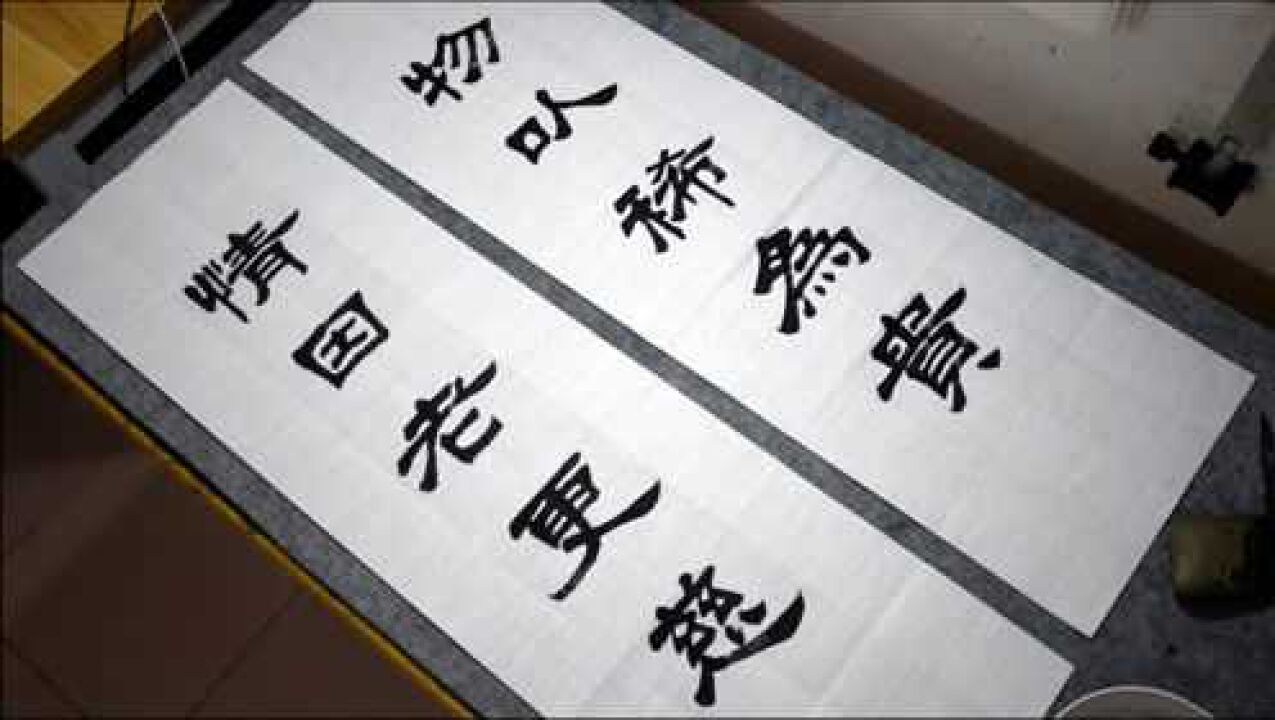 物以稀為貴
情因老更慈